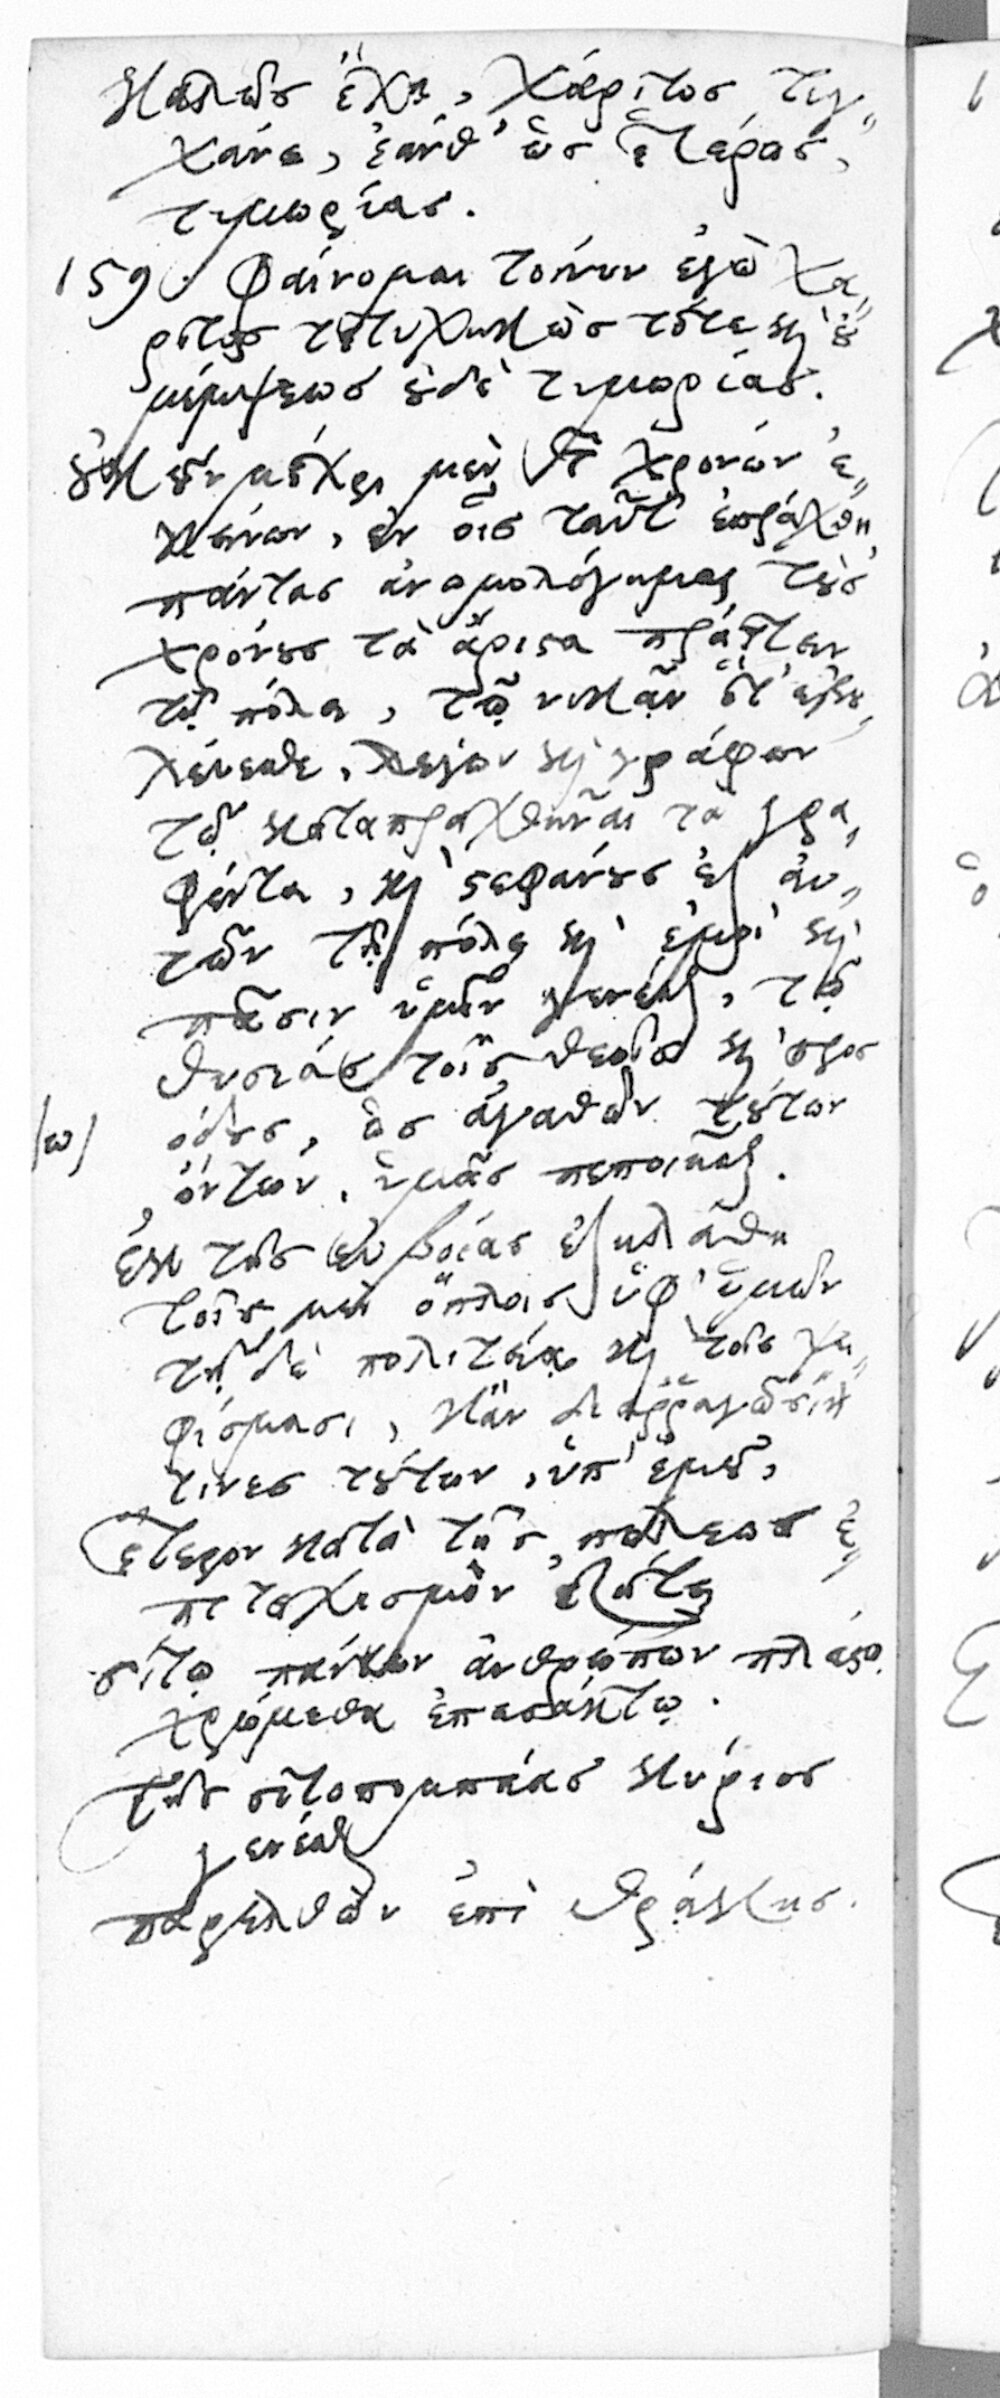 καλῶς ἔχῃ, χάριτος τυγ„
χάνει, ἐὰν δ' ὡς ἑτέρως,
τιμωρίας.
159. Φαίνομαι τοίνυν ἐγὼ χά„
ριτος τετυχηκὼς τότε κὶ ȣ̓
μέμψεως ȣ̓δὲ τιμωρίας.
ȣ̓κȣ͂ν μέχρι μὲν τῶν χρόνων ἐ„
κείνων, ἐν οἷς ταῦτ' ἐπράχθη
πάντας ἀνωμολόγημαι τȣ̀ς
χρόνȣς τὰ ἄριστα πράττειν
τῇ πόλει, τῷ νικᾶν ὅτ' ἐβȣ„
λεύεσθε, λέγων κὶ γράφων
τῷ καταπραχθῆναι τὰ γρα„
φέντα, κὶ στεφάνȣς ἐξ αὐ„
τῶν τῇ πόλει κὶ ἐμοὶ κὶ
πᾶσιν ὑμῖν γενέσθαι, τῷ
θυσίας τοῖς θεοῖς κὶ προσ
/ω/ όδȣς, ὡς ἀγαθῶν τȣ́των
ὄντων, ὑμᾶς πεποιῆσθαι.
ἐκ τῆς Εὐβοίας ἐξηλάθη
τοῖς μὲν ὅπλοις ὑφ' ὑμῶν
τῇ δὲ πολιτείᾳ κὶ τοῖς ψη„
φίσμασι, κἂν διαῤῥαγῶσί
τινες τȣ́των, ὑπ' ἐμȣ͂,
ἕτερον κατὰ τῆς πόλεως ἐ„
πιτειχισμὸν ἐζήτει
σίτῳ πάντων ἀνθρώπων πλείστῳ
χρώμεθα ἐπεισάκτῳ.
τῆς σιτοπομπείας κύριος
γενέσθαι
παρελθὼν ἐπὶ Θρᾴκης.